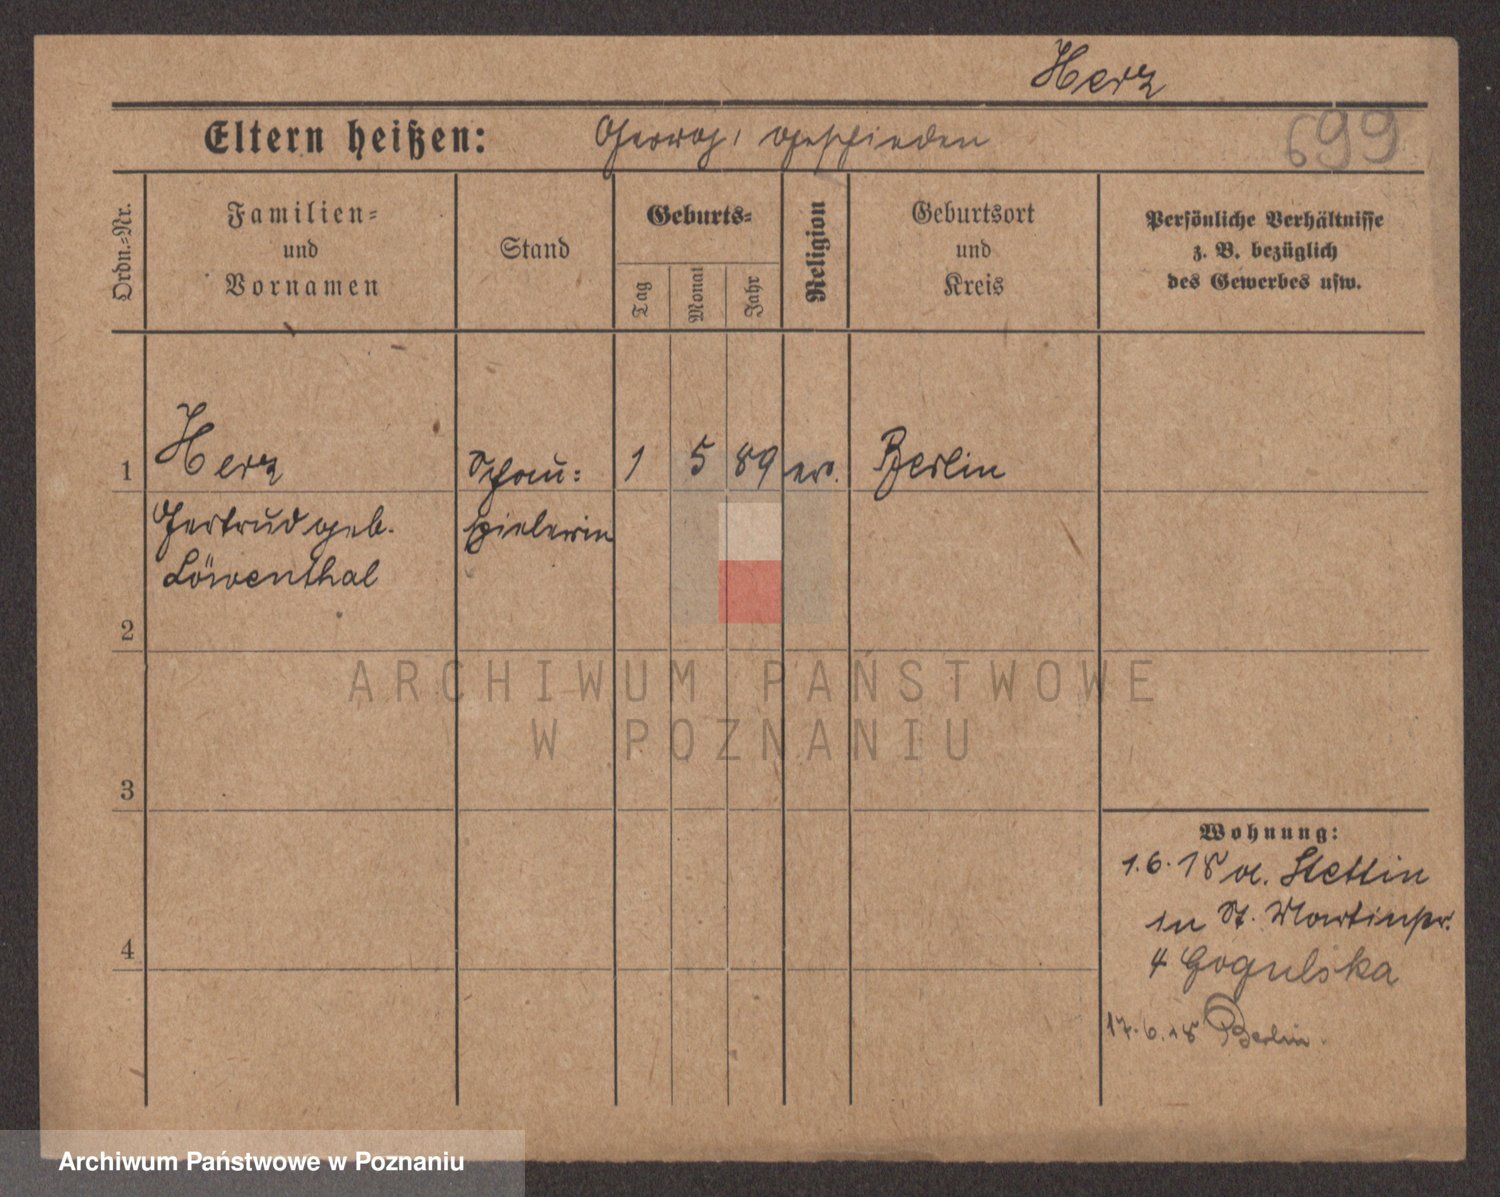 Herz
Eltern heißen: geschieden
699
Ordn.=Nr.
Familien=
und
Vornamen
Stand
Geburts=
Tag
Monat
Jahr
Religion
Geburtsort
und
Kreis
Persönliche Verhältnisse
z. B. bezüglich
des Gewerbes usw.
1 Herz Schau= 1 5 89 ev. Berlin
Gertrud geb. spielerin
Löwenthal
2
ARCHIWUM PAŃSTWOWE
W POZNANIU
3
Wohnung:
1.6.18 a. Stettin
in St. Martinstr.
4 Gogulska
4
17.6.18 Berlin.
Archiwum Państwowe w Poznaniu